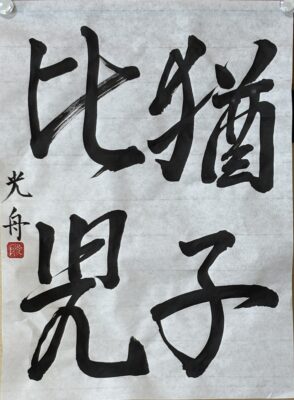 猶子
比兒
光舟